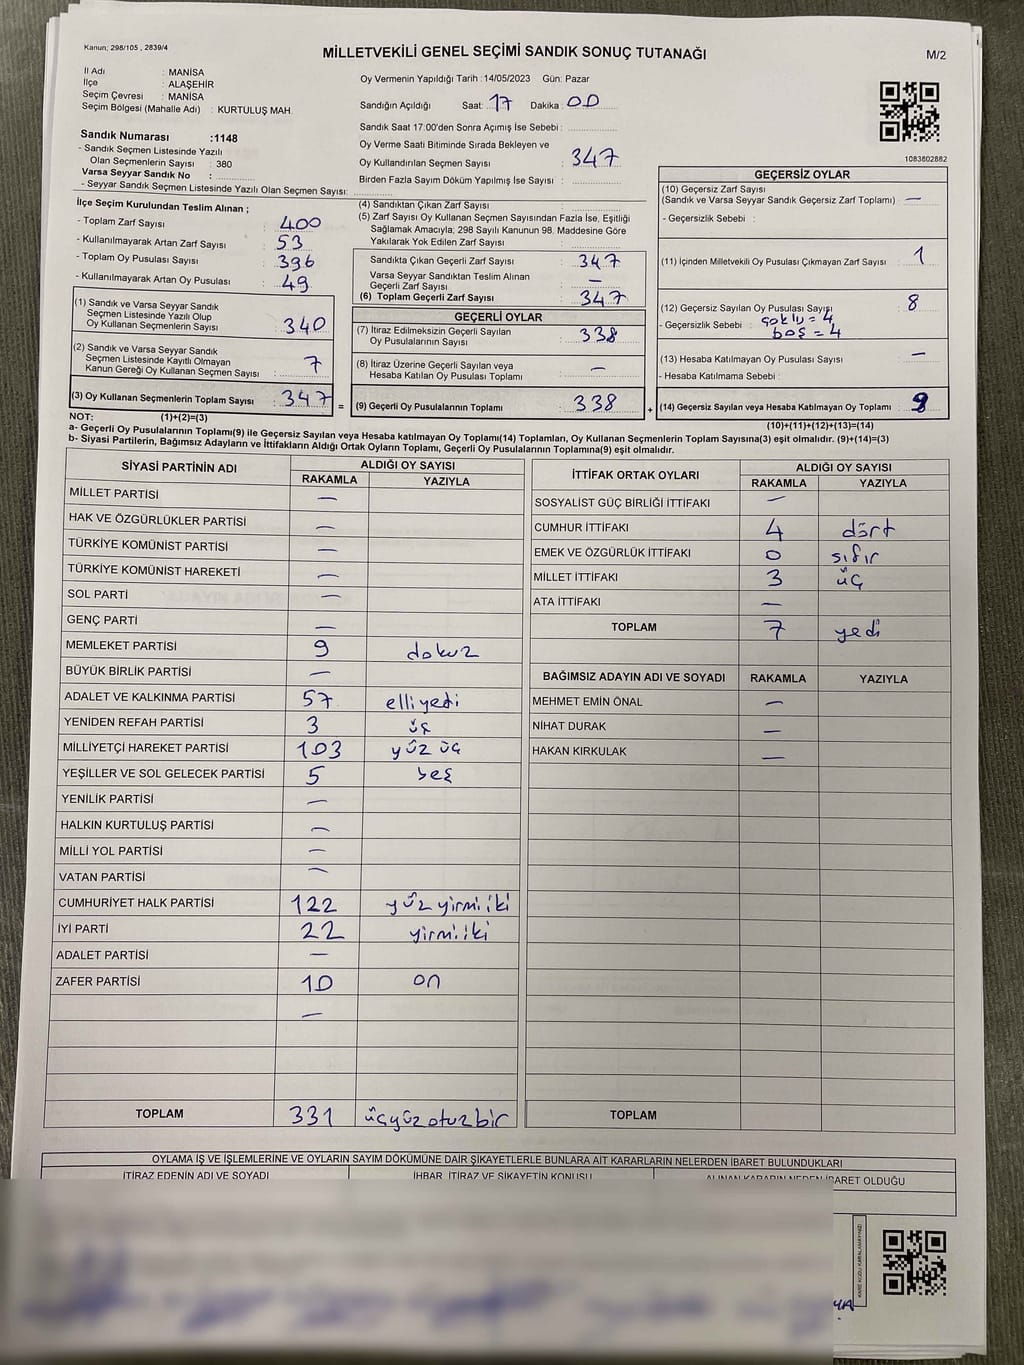 Kanun; 298/105 , 2839/4
MİLLETVEKİLİ GENEL SEÇİMİ SANDIK SONUÇ TUTANAĞI
M/2
İl Adı : MANİSA
İlçe : ALAŞEHİR
Seçim Çevresi : MANİSA
Seçim Bölgesi (Mahalle Adı) : KURTULUŞ MAH.
Sandık Numarası :1148
- Sandık Seçmen Listesinde Yazılı
Olan Seçmenlerin Sayısı : 380
Varsa Seyyar Sandık No :
- Seyyar Sandık Seçmen Listesinde Yazılı Olan Seçmen Sayısı:
Oy Vermenin Yapıldığı Tarih :14/05/2023 Gün: Pazar
Sandığın Açıldığı Saat: 17 Dakika: 00
Sandık Saat 17:00'den Sonra Açımış İse Sebebi :
Oy Verme Saati Bitiminde Sırada Bekleyen ve
Oy Kullandırılan Seçmen Sayısı : 347
Birden Fazla Sayım Döküm Yapılmış İse Sayısı :
1083602882
İlçe Seçim Kurulundan Teslim Alınan ;
- Toplam Zarf Sayısı : 400
- Kullanılmayarak Artan Zarf Sayısı : 53
- Toplam Oy Pusulası Sayısı : 396
- Kullanılmayarak Artan Oy Pusulası : 49
(1) Sandık ve Varsa Seyyar Sandık
Seçmen Listesinde Yazılı Olup
Oy Kullanan Seçmenlerin Sayısı : 340
(2) Sandık ve Varsa Seyyar Sandık
Seçmen Listesinde Kayıtlı Olmayan
Kanun Gereği Oy Kullanan Seçmen Sayısı : 7
(3) Oy Kullanan Seçmenlerin Toplam Sayısı : 347
(4) Sandıktan Çıkan Zarf Sayısı :
(5) Zarf Sayısı Oy Kullanan Seçmen Sayısından Fazla İse, Eşitliği
Sağlamak Amacıyla; 298 Sayılı Kanunun 98. Maddesine Göre
Yakılarak Yok Edilen Zarf Sayısı :
Sandıkta Çıkan Geçerli Zarf Sayısı : 347
Varsa Seyyar Sandıktan Teslim Alınan
Geçerli Zarf Sayısı : —
(6) Toplam Geçerli Zarf Sayısı : 347
GEÇERLİ OYLAR
(7) İtiraz Edilmeksizin Geçerli Sayılan
Oy Pusulalarının Sayısı : 338
(8) İtiraz Üzerine Geçerli Sayılan veya
Hesaba Katılan Oy Pusulası Toplamı : —
= (9) Geçerli Oy Pusulalarının Toplamı : 338
GEÇERSİZ OYLAR
(10) Geçersiz Zarf Sayısı
(Sandık ve Varsa Seyyar Sandık Geçersiz Zarf Toplamı) : —
- Geçersizlik Sebebi :
(11) İçinden Milletvekili Oy Pusulası Çıkmayan Zarf Sayısı : 1
(12) Geçersiz Sayılan Oy Pusulası Sayısı : 8
- Geçersizlik Sebebi : çoklu = 4
boş = 4
(13) Hesaba Katılmayan Oy Pusulası Sayısı : —
- Hesaba Katılmama Sebebi :
+ (14) Geçersiz Sayılan veya Hesaba Katılmayan Oy Toplamı : 9
(10)+(11)+(12)+(13)=(14)
NOT: (1)+(2)=(3)
a- Geçerli Oy Pusulalarının Toplamı(9) ile Geçersiz Sayılan veya Hesaba katılmayan Oy Toplamı(14) Toplamları, Oy Kullanan Seçmenlerin Toplam Sayısına(3) eşit olmalıdır. (9)+(14)=(3)
b- Siyasi Partilerin, Bağımsız Adayların ve İttifakların Aldığı Ortak Oyların Toplamı, Geçerli Oy Pusulalarının Toplamına(9) eşit olmalıdır.
SİYASİ PARTİNİN ADI ALDIĞI OY SAYISI
RAKAMLA YAZIYLA
MİLLET PARTİSİ —
HAK VE ÖZGÜRLÜKLER PARTİSİ —
TÜRKİYE KOMÜNİST PARTİSİ —
TÜRKİYE KOMÜNİST HAREKETİ —
SOL PARTİ —
GENÇ PARTİ —
MEMLEKET PARTİSİ 9 dokuz
BÜYÜK BİRLİK PARTİSİ —
ADALET VE KALKINMA PARTİSİ 57 elliyedi
YENİDEN REFAH PARTİSİ 3 üç
MİLLİYETÇİ HAREKET PARTİSİ 103 yüz üç
YEŞİLLER VE SOL GELECEK PARTİSİ 5 beş
YENİLİK PARTİSİ —
HALKIN KURTULUŞ PARTİSİ —
MİLLİ YOL PARTİSİ —
VATAN PARTİSİ —
CUMHURİYET HALK PARTİSİ 122 yüzyirmiiki
İYİ PARTİ 22 yirmiiki
ADALET PARTİSİ —
ZAFER PARTİSİ 10 on
—
TOPLAM 331 üçyüzotuzbir
İTTİFAK ORTAK OYLARI ALDIĞI OY SAYISI
RAKAMLA YAZIYLA
SOSYALİST GÜÇ BİRLİĞİ İTTİFAKI —
CUMHUR İTTİFAKI 4 dört
EMEK VE ÖZGÜRLÜK İTTİFAKI 0 sıfır
MİLLET İTTİFAKI 3 üç
ATA İTTİFAKI —
TOPLAM 7 yedi
BAĞIMSIZ ADAYIN ADI VE SOYADI RAKAMLA YAZIYLA
MEHMET EMİN ÖNAL —
NİHAT DURAK —
HAKAN KIRKULAK —
TOPLAM
OYLAMA İŞ VE İŞLEMLERİNE VE OYLARIN SAYIM DÖKÜMÜNE DAİR ŞİKAYETLERLE BUNLARA AİT KARARLARIN NELERDEN İBARET BULUNDUKLARI
İTİRAZ EDENİN ADI VE SOYADI İHBAR, İTİRAZ VE ŞİKAYETİN KONUSU ALINAN KARARIN NEDEN İBARET OLDUĞU
KARE KODU KARALAMAYINIZ!